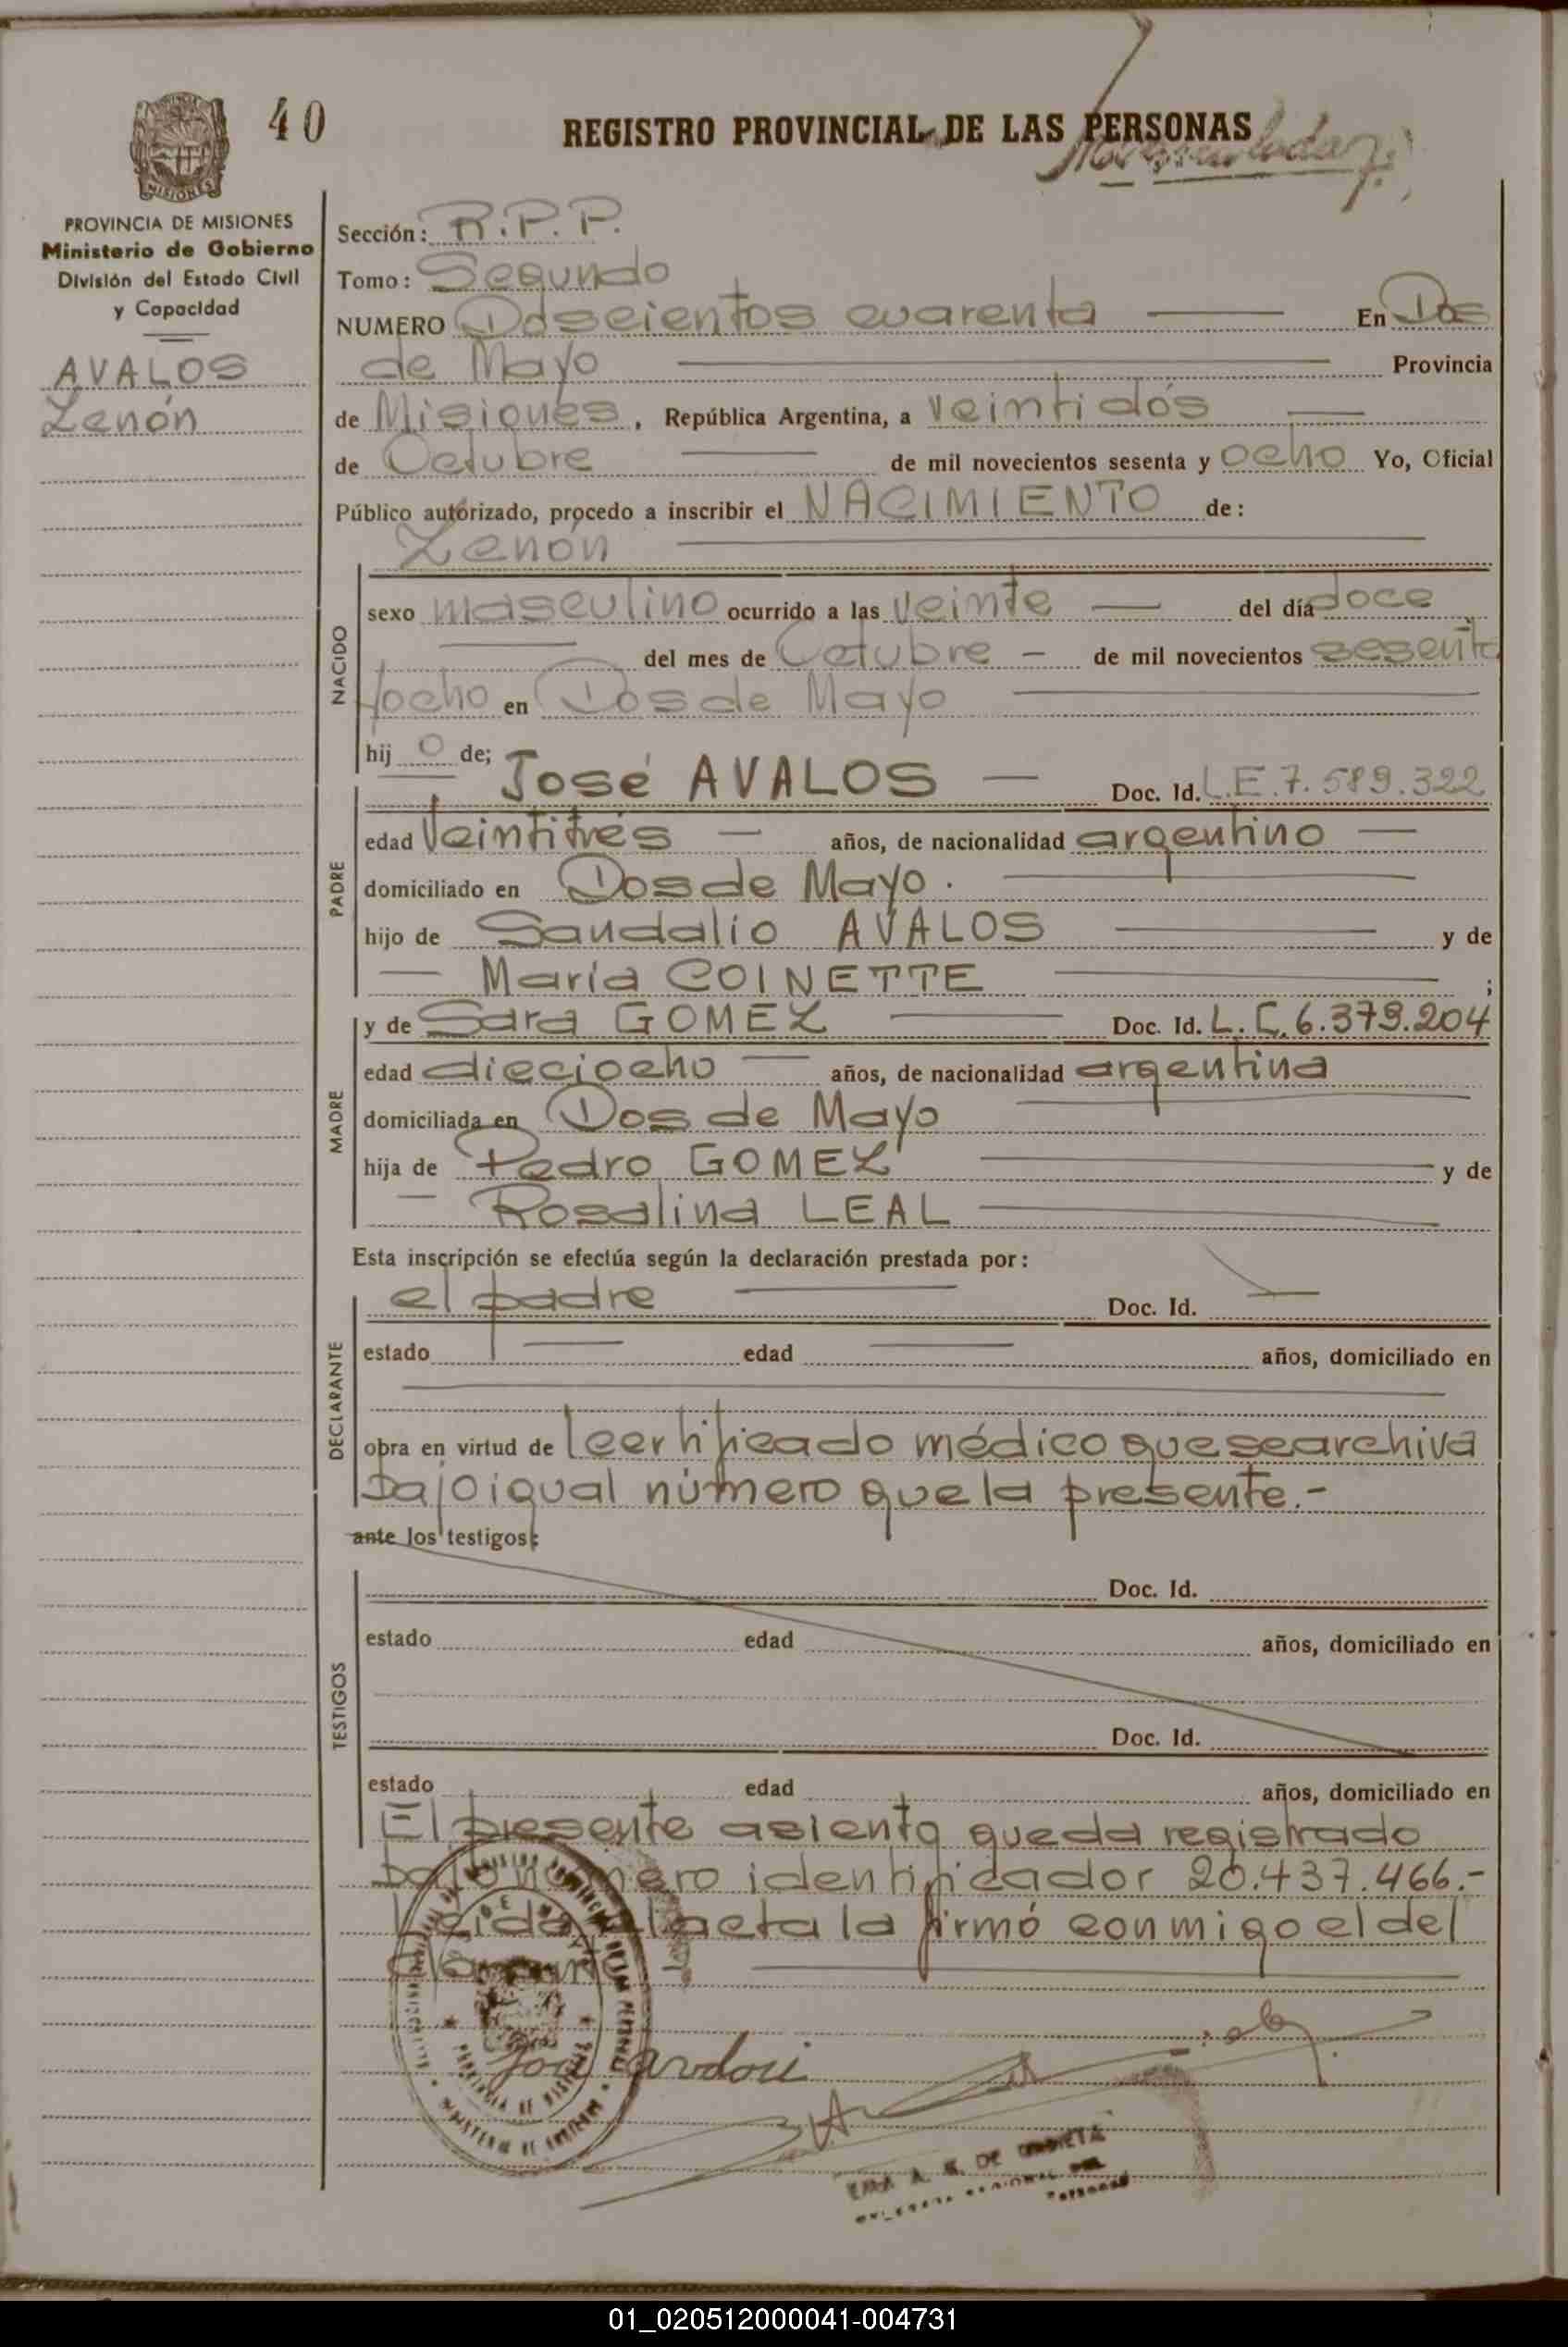 40
REGISTRO PROVINCIAL DE LAS PERSONAS
MISIONES
PROVINCIA DE MISIONES
Ministerio de Gobierno
División del Estado Civil
y Capacidad
AVALOS
Zenón
Sección: R.P.P.
Tomo: Segundo
NUMERO Doscientos cuarenta En Dos
de Mayo Provincia
de Misiones, República Argentina, a veintidós
de Octubre de mil novecientos sesenta y ocho Yo, Oficial
Público autorizado, procedo a inscribir el NACIMIENTO de:
Zenón
NACIDO
sexo masculino ocurrido a las veinte del día doce
del mes de Octubre - de mil novecientos sesenta
y ocho en Dos de Mayo
hij o de;
PADRE
José AVALOS — Doc. Id. L.E.7.589.322
edad veintitrés — años, de nacionalidad argentino —
domiciliado en Dos de Mayo.
hijo de Sandalio AVALOS y de
— María COINETTE ;
MADRE
y de Sara GOMEZ Doc. Id. L.C.6.379.204
edad dieciocho años, de nacionalidad argentina
domiciliada en Dos de Mayo
hija de Pedro GOMEZ y de
— Rosalina LEAL
Esta inscripción se efectúa según la declaración prestada por:
DECLARANTE
el padre Doc. Id.
estado edad años, domiciliado en
obra en virtud de certificado médico que se archiva
bajo igual número que la presente.-
ante los testigos:
TESTIGOS
Doc. Id.
estado edad años, domiciliado en
Doc. Id.
estado edad años, domiciliado en
El presente asiento queda registrado
bajo número identificador 20.437.466.-
Leída el acta la firmó conmigo el de
clarante
A. DE
01_020512000041-004731